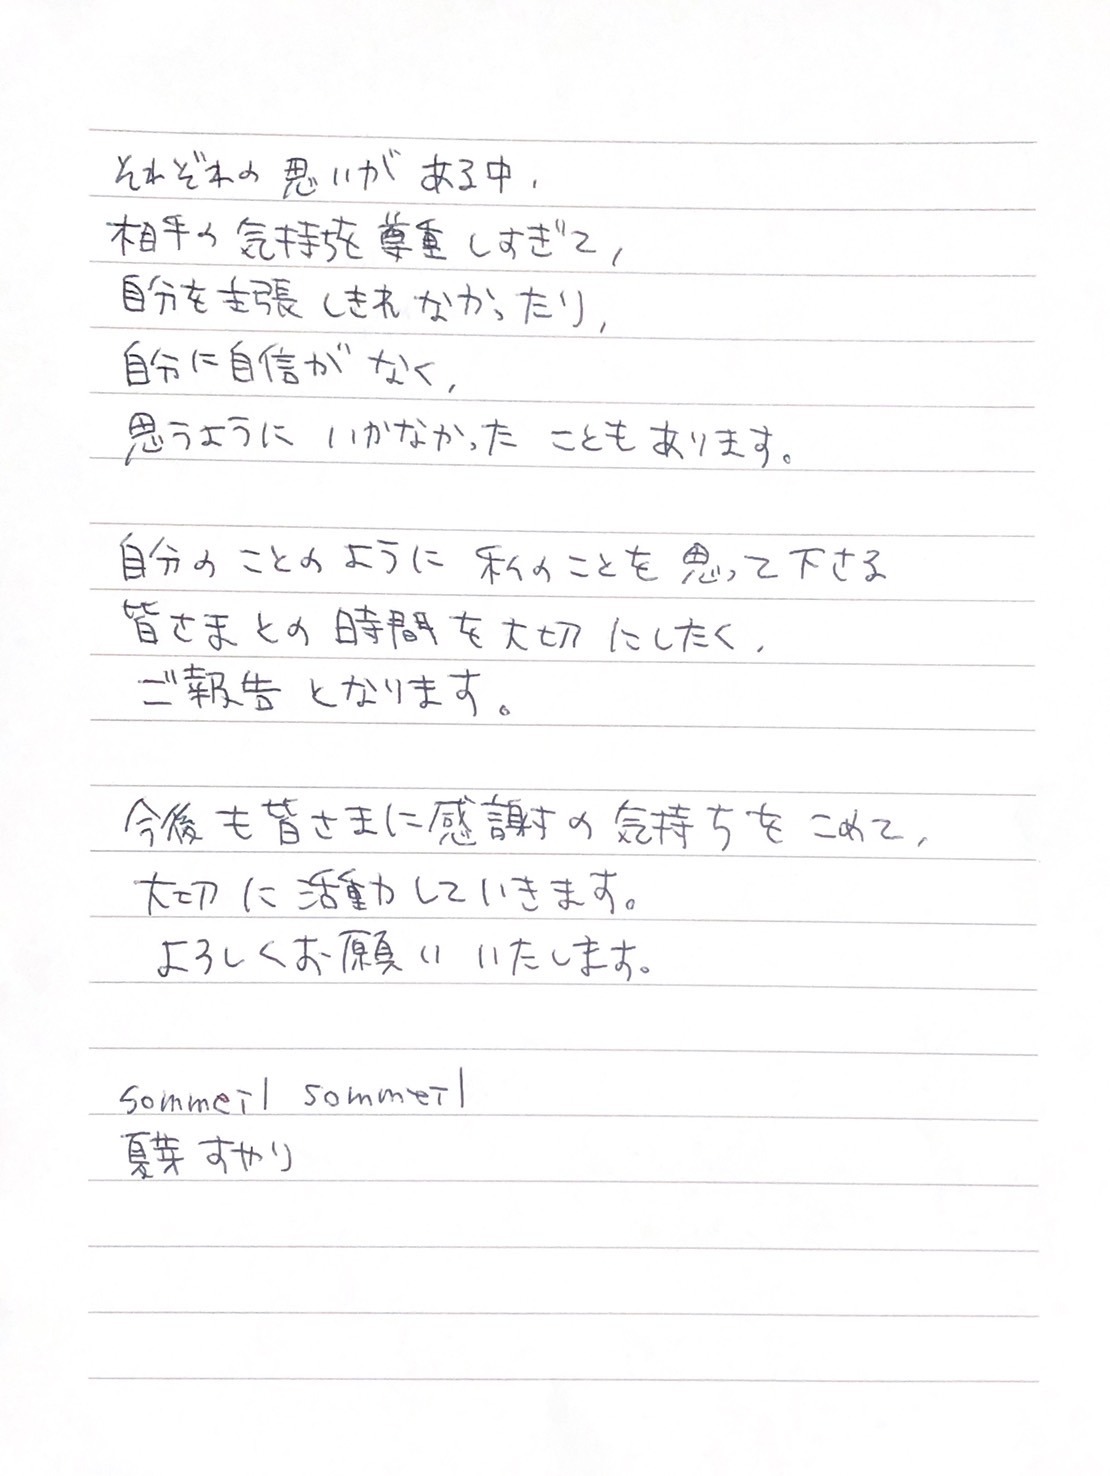 それぞれの思いがある中、
相手の気持ちを尊重しすぎて、
自分を主張しきれなかったり、
自分に自信がなく、
思うようにいかなかったこともあります。
自分のことのように私のことを思って下さる
皆さまとの時間を大切にしたく、
ご報告となります。
今後も皆さまに感謝の気持ちをこめて、
大切に活動していきます。
よろしくお願いいたします。
sommeil sommeil
夏芽すやり